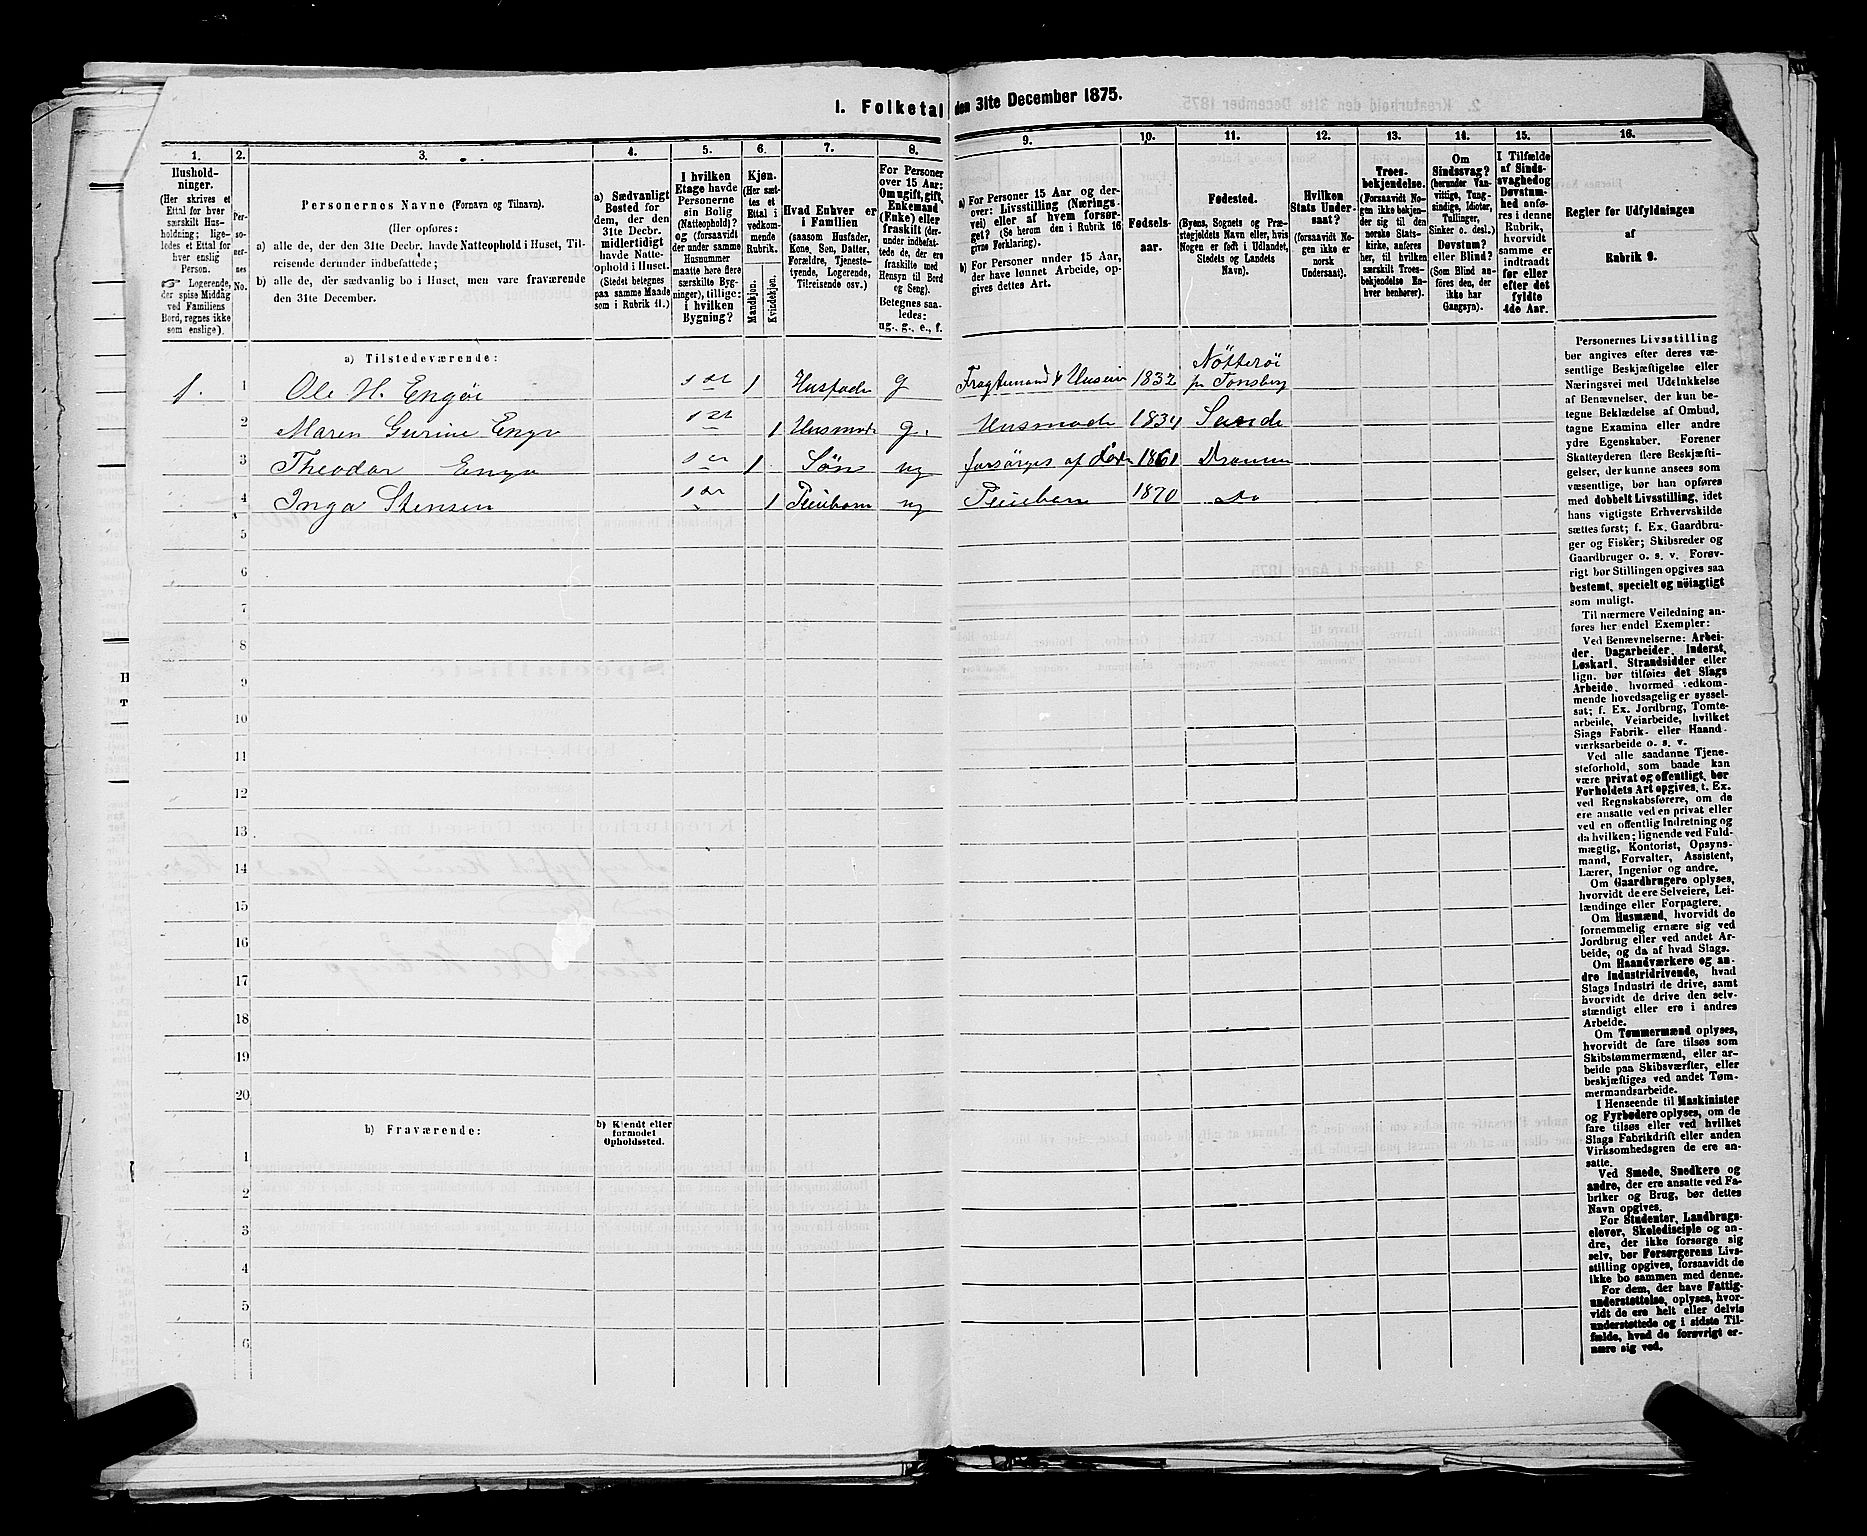 1. Folketal den 31te December 1875.
1. 2. 3. 4. 5. 6. 7. 8. 9. 10. 11. 12. 13. 14. 15. 16.
Hushold-
ninger.
(Her skrives et
Ettal for hver
særskilt Hus-
holdning; lige-
ledes et Ettal for
hver enslig
Person.
☞ Logerende,
der spise Middag
ved Familiens
Bord, regnes ikke
som enslige).
Per-
so-
ner-
nes
No.
Personernes Navne (Fornavn og Tilnavn).
(Her opføres:
a) alle de, der den 31te Decbr. havde Natteophold i Huset, Til-
reisende derunder indbefattede;
b) alle de, der sædvanlig bo i Huset, men vare fraværende
den 31te December.
a) Sædvanligt
Bosted for
dem, der den
31te Decbr.
midlertidigt
havde Natte-
ophold i Huset.
(Stedet betegnes
paa samme Maade
som i Rubrik 11.)
I hvilken
Etage havde
Personerne
sin Bolig
(Natteophold)?
og (forsaavidt
der under samme
Husnummer
maatte høre flere
særskilte Byg-
ninger), tillige:
i hvilken
Bygning?
Kjøn.
(Her sæt-
tes et
Ettal i
vedkom-
mende
Rubrik.
Mandkjøn.
Kvindekjøn.
Hvad Enhver er
i Familien
(saasom Husfader,
Kone, Søn, Datter,
Forældre, Tjeneste-
tyende, Logerende,
Tilreisende osv.)
For Personer
over 15 Aar:
Om ugift, gift,
Enkemand
(Enke) eller
fraskilt (der-
under indbefat-
tede de, der ere
fraskilte med
Hensyn til Bord
og Seng).
Betegnes saa-
ledes:
ug., g., e., f.
a) For Personer 15 Aar og der-
over: Livsstilling (Nærings-
vei) eller af hvem forsør-
get? (Se herom den i Rubrik 16
givne Forklaring).
b) For Personer under 15 Aar,
der have lønnet Arbeide, op-
gives dettes Art.
Fødsels-
aar.
Fødested.
(Byens, Sognets og Præ-
stegjeldets Navn eller, hvis
Nogen er født i Udlandet,
Stedets og Landets
Navn).
Hvilken
Stats Under-
saat?
(forsaavidt No-
gen ikke er
norsk
Undersaat).
Troes-
bekjendelse.
(Forsaavidt No-
gen ikke bekjen-
der sig til den
norske Stats-
kirke, anføres
her, til hvilken
særskilt Troes-
bekjendelse En-
hver henhører).
Om
Sindssvag?
(herunder Van-
vittige, Tung-
sindige, Idioter,
Tullinger,
Sinker o. desl.)
Døvstum?
eller Blind?
(Som Blind an-
føres den, der
ikke har
Gangsyn).
I Tilfælde
af Sinds-
svaghed og
Døvstum-
hed anfø-
res i denne
Rubrik,
hvorvidt
samme er
indtraadt
før eller
efter det
fyldte
4de Aar.
Regler for Udfyldningen
af
Rubrik 9.
a) Tilstedeværende:
1. 1 Ole H. Engöe 1 Husfader g Fragtemand & Huseier 1832 Nötterö pr Tönsberg
2 Maren Gurine Engø 1 Husmoder g. Husmoder 1834 Sande
3 Theodor Engø 1 Søn ug forsørges af 1861 Drammen
4 Inga Stensen 1 Pleiebarn ug Pleiebarn 1870 do
5
6
7
8
9
10
11
12
13
14
15
16
17
18
19
20
b) Fraværende:
b) Kjendt eller
formodet
Opholdssted.
1
2
3
4
5
6
Personernes Livsstilling
bør angives efter deres væ-
sentlige Beskjæftigelse eller
Næringsvei med Udelukkelse
af Benævnelser, der kun be-
tegne Beklædelse af Ombud,
tagne Examina eller andre
ydre Egenskaber. Forener
Skatteyderen flere Beskjæfti-
gelser, der kunne ansees som
væsentlige, bør han opføres
med dobbelt Livsstilling, idet
hans vigtigste Erhvervskilde
sættes først; f. Ex. Gaardbru-
ger og Fisker; Skibsreder og
Gaardbruger o. s. v. Forøv-
rigt bør Stillingen opgives saa
bestemt, specielt og nøiagtigt
som muligt.
Til nærmere Veiledning an-
føres her endel Exempler:
Ved Benævnelserne: Arbei-
der, Dagarbeider, Inderst,
Løskarl, Strandsidder eller
lign. bør tilføies det Slags
Arbeide, hvormed vedkom-
mende hovedsagelig er syssel-
sat; f. Ex. Jordbrug, Tomte-
arbeide, Veiarbeide, hvilket
Slags Fabrik- eller Haand-
værksarbeide o. s. v.
Ved alle saadanne Tjene-
steforhold, som baade kan
være privat og offentligt, bør
Forholdets Art opgives, t. Ex.
ved Regnskabsførere, om de
ere ansatte ved en privat eller
ved en offentlig Indretning og
da hvilken; lignende ved Fuld-
mægtig, Kontorist, Opsyns-
mand, Forvalter, Assistent,
Lærer, Ingeniør og andre.
Om Gaardbrugere oplyses,
hvorvidt de ere Selveiere, Lei-
lændinge eller Forpagtere.
Om Husmænd, hvorvidt de
fornemmelig ernære sig ved
Jordbrug eller ved andet Ar-
beide, og da af hvad Slags.
Om Haandværkere og an-
dre Industridrivende, hvad
Slags Industri de drive, samt
hvorvidt de drive den selv-
stændigt eller ere i andres
Arbeide.
Om Tømmermænd oplyses,
hvorvidt de fare tilsøs som
Skibstømmermænd, eller ar-
beide paa Skibsværfter, eller
beskjæftiges ved andet Tøm-
mermandsarbeide.
I Henseende til Maskinister
og Fyrbødere oplyses, om de
fare tilsøs eller ved hvilket
Slags Fabrikdrift eller anden
Virksomhedsgren de ere an-
satte.
Ved Smede, Snedkere og
andre, der ere ansatte ved Fa-
briker og Brug, bør dettes
Navn opgives.
For Studenter, Landbrugs-
elever, Skoledisciple og an-
dre, der ikke forsørge sig
selv, bør Forsørgerens Livs-
stilling opgives, forsaavidt de
ikke bo sammen med denne.
For dem, der have Fattig-
understøttelse, oplyses, hvor-
vidt de ere helt eller delvis
understøttede og i sidste Til-
fælde, hvad de forøvrigt er-
nære sig ved.